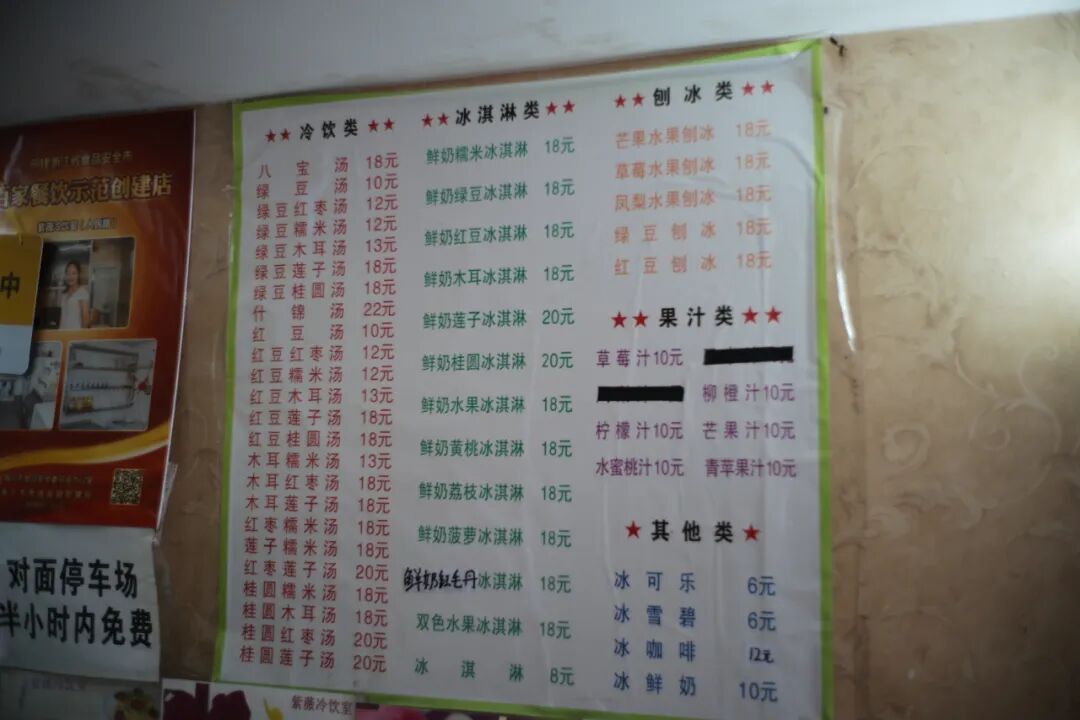 食品安全市
百家餐饮示范创建店
中
对面停车场
半小时内免费
紫薇冷饮室
★★冷饮类★★
八宝汤 18元
绿豆汤 10元
绿豆红枣汤 12元
绿豆糯米汤 12元
绿豆木耳汤 13元
绿豆莲子汤 18元
绿豆桂圆汤 18元
什锦汤 22元
红豆汤 10元
红豆红枣汤 12元
红豆糯米汤 12元
红豆木耳汤 13元
红豆莲子汤 18元
红豆桂圆汤 18元
木耳糯米汤 13元
木耳红枣汤 18元
木耳莲子汤 18元
红枣糯米汤 18元
莲子糯米汤 18元
红枣莲子汤 20元
桂圆糯米汤 18元
桂圆木耳汤 18元
桂圆红枣汤 20元
桂圆莲子汤 20元
★★冰淇淋类★★
鲜奶糯米冰淇淋 18元
鲜奶绿豆冰淇淋 18元
鲜奶红豆冰淇淋 18元
鲜奶木耳冰淇淋 18元
鲜奶莲子冰淇淋 20元
鲜奶桂圆冰淇淋 20元
鲜奶水果冰淇淋 18元
鲜奶黄桃冰淇淋 18元
鲜奶荔枝冰淇淋 18元
鲜奶菠萝冰淇淋 18元
鲜奶红毛丹冰淇淋 18元
双色水果冰淇淋 18元
冰淇淋 8元
★★刨冰类★★
芒果水果刨冰 18元
草莓水果刨冰 18元
凤梨水果刨冰 18元
绿豆刨冰 18元
红豆刨冰 18元
★★果汁类★★
草莓汁10元
柳橙汁10元
柠檬汁10元 芒果汁10元
水蜜桃汁10元 青苹果汁10元
★其他类★
冰可乐 6元
冰雪碧 6元
冰咖啡 12元
冰鲜奶 10元